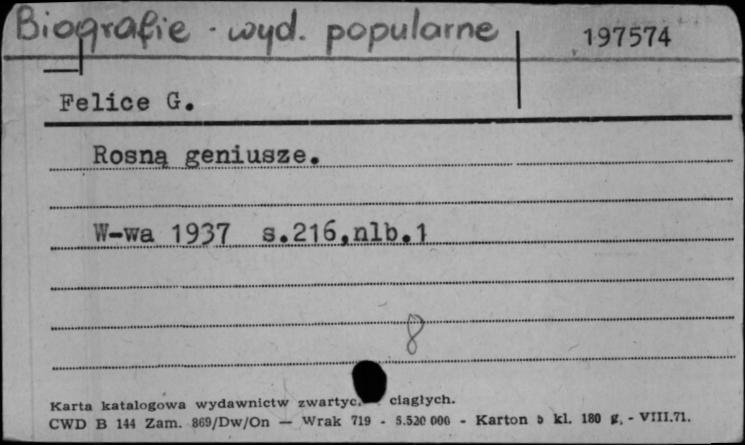 Biografie - wyd. popularne
197574
Felice G.
Rosną geniusze.
W-wa 1937 s.216,nlb.1
8
Karta katalogowa wydawnictw ciągłych.
CWD B 144 Zam. 869/Dw/On — Wrak 719 - 5.520 000 - Karton kl. 180 g, - VIII.71.